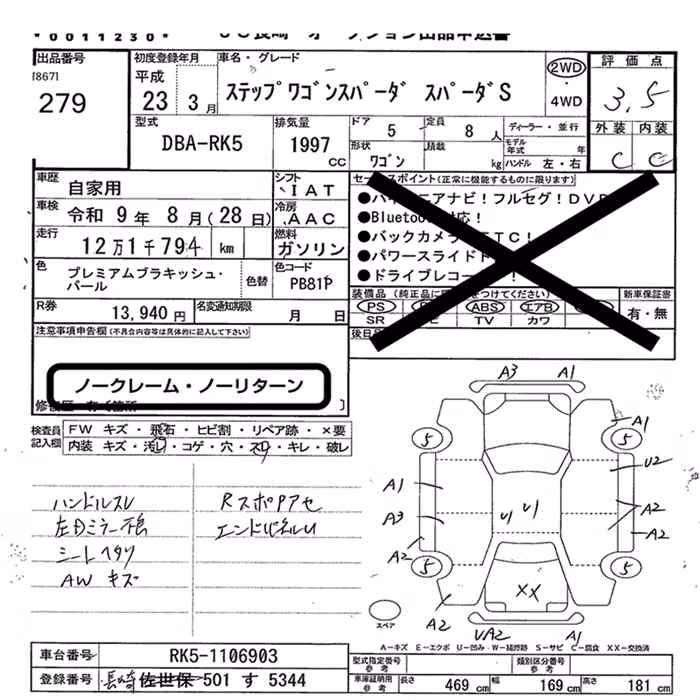 *0011230*
出品番号
[867]
279
初度登録年月
平成
23年 3月
車名・グレード
ステップワゴンスパーダ スパーダS
2WD
・
4WD
評価点
3,5
外装 内装
C C
型式
DBA-RK5
排気量
1997
CC
ドア
5
定員
8 人
形状
ワゴン
積載
kg
ディーラー・並行
モデル年式
年
ハンドル 左・右
車歴
自家用
シフト
IAT
車検
令和 9年 8月(28日)
冷房
AAC
走行
12万1千794 km
燃料
ガソリン
色
プレミアムブラキッシュ・パール
色替
色コード
PB81P
R券
13,940円
名変通知期限
月 日
セールスポイント(正常に機能するものに限ります)
●バックカメラ
●パワースライドド
●ドライブレコー
新車保証書
有・無
PS
ABS
エアB
SR
TV
カワ
注意事項申告欄(不具合内容等は具体的に記入して下さい)
ノークレーム・ノーリターン
検査員記入欄
FW キズ・飛石・ヒビ割・リペア跡・×要
内装 キズ・汚レ・コゲ・穴・スレ・キレ・破レ
ハンドルスレ
シートヘタリ
AW キズ
A3 A1
A1
5 5
U2
A1
A3
A2
U1 U1
A2
A2
5 5
XX
A2
UA2
A1
スペア
A-キズ E-エクボ U-凹み W-補修跡 S-サビ C-腐食 XX-交換済
車台番号
RK5-1106903
登録番号
長崎 佐世保 501 す 5344
型式指定番号
参考
類別区分番号
参考
車庫証明用
参考
長さ
469 cm
幅
169 cm
高さ
181 cm